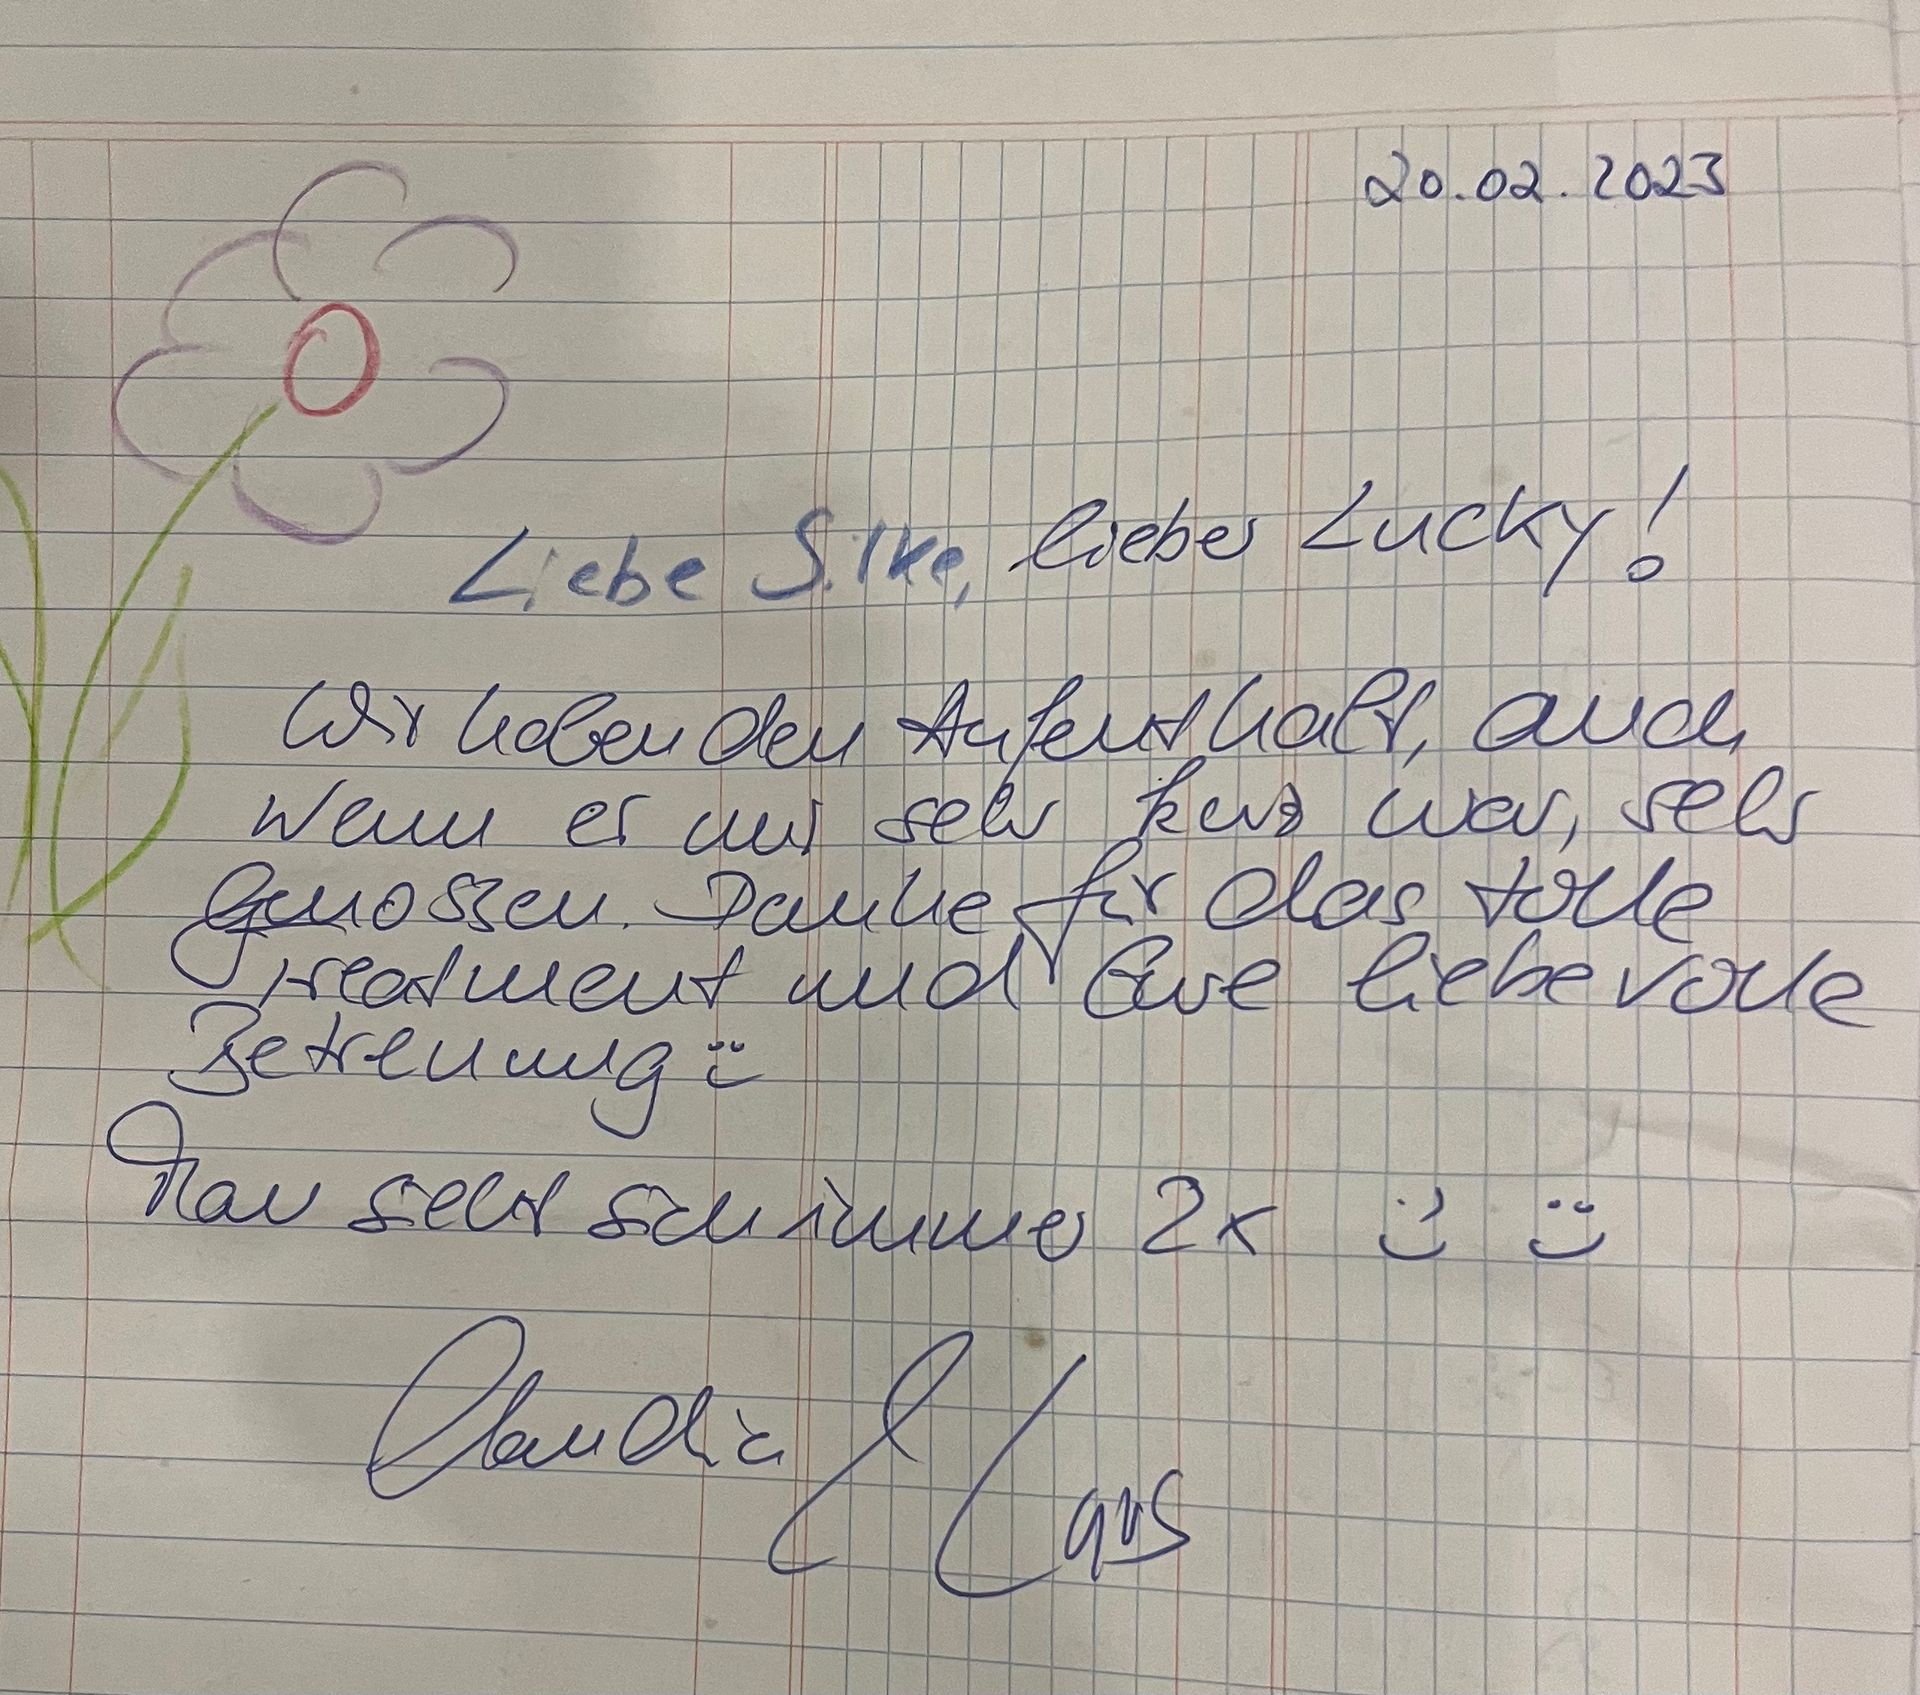 20.02.2023
Liebe Silke, lieber Lucky!
Wir haben den Aufenthalt, auch
wenn er nur sehr kurz war, sehr
genossen. Danke für das tolle
Treatment und Eure liebevolle
Betreuung :)
Man sieht sich immer 2x :) :)
Claudia &